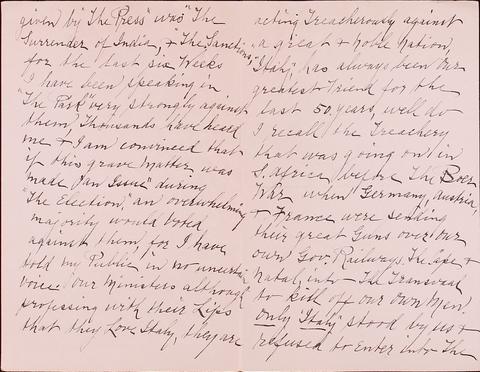 given by "The Press" was "The
Surrender of India, & "The Sanctions,"
for the last six weeks
I have been speaking in
"The Park" very strongly against
them, Thousands have heard
me & I am convinced that
if this grave matter was
made "an Issue" during
"The Election," an overwhelming
majority would voted
against them, for I have
told my Public in no uncertain
voice. our Ministers although
professing with their Lips
that they Love Italy, they are
acting Treacherously against
a great & noble Nation,
"Italy," has always been our
greatest Friend for the
last 50 years, well do
I recall the Treachery
that was going on in
S. Africa before The Boer
War when Germany, Austria,
& France were sending
their great Guns over our
own Gov. Railways. &
Natal, into The Transvaal
to kill off our own Men.
only "Italy" stood by us &
refused to enter into The